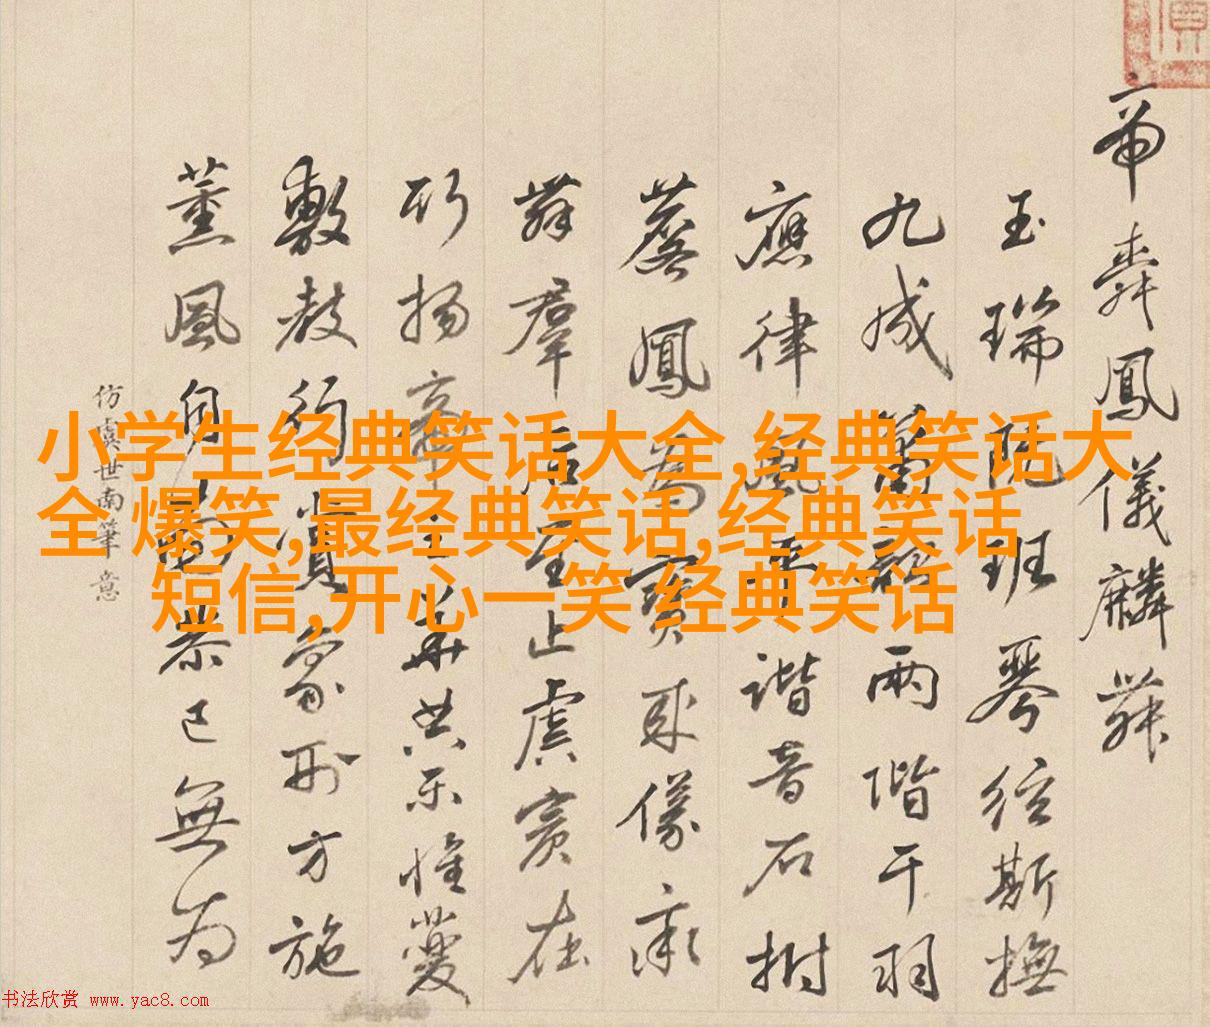 帝舜鳳儀麟舞
玉瑞既班琴絃斯撫
九成簫韶兩階干羽
應律風諧音石拊
鳳為賓儀
舞羣后止虞賓在
揚帝華典樂惟夔
敷教象刑方施
薰風自恭己無為
仿虞世南筆意
小学生经典笑话大全,经典笑话大
全 爆笑,最经典笑话,经典笑话
短信,开心一笑 经典笑话
书法欣赏 www.yac8.com